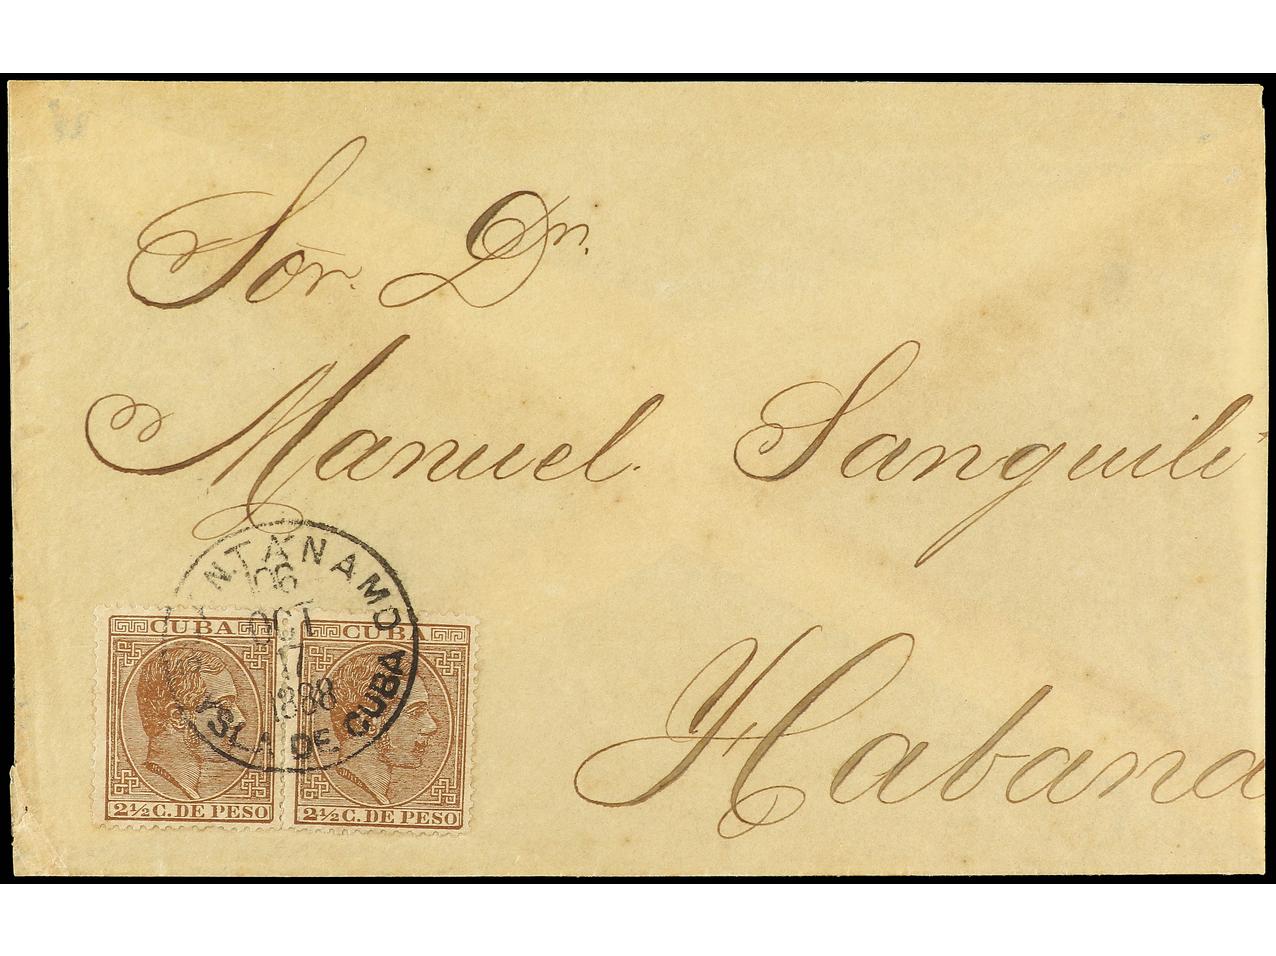 Sōr. Dn.
Manuel. Sanguili
Habana
NTANAMO
06
OCT
17
1888
ISLA DE CUBA
CUBA CUBA
2½ C. DE PESO 2½ C. DE PESO